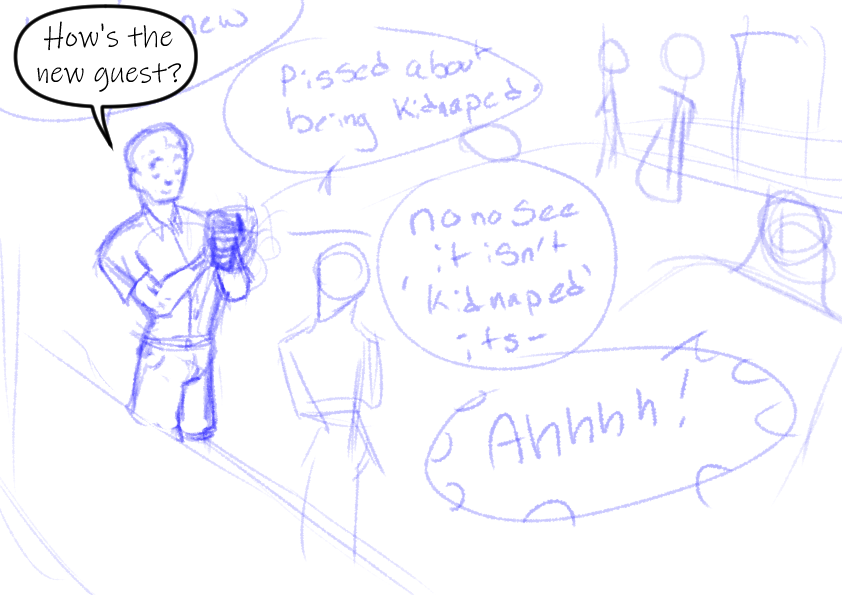 new
How's the
new guest?
Pissed about
being kidnaped.
no no see
it isn't
'kidnaped'
its-
Ahhhh!